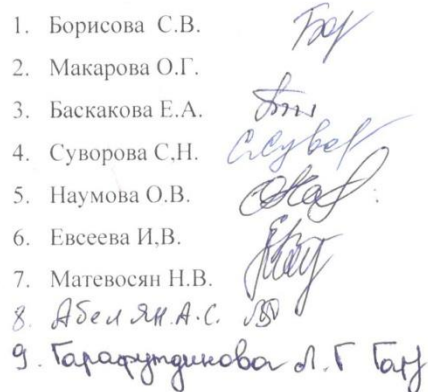 1. Борисова С.В.
2. Макарова О.Г.
3. Баскакова Е.А.
4. Суворова С,Н.
5. Наумова О.В.
6. Евсеева И,В.
7. Матевосян Н.В.
8. Абелян.А.С.
9. Гарафутдинова Л.Г